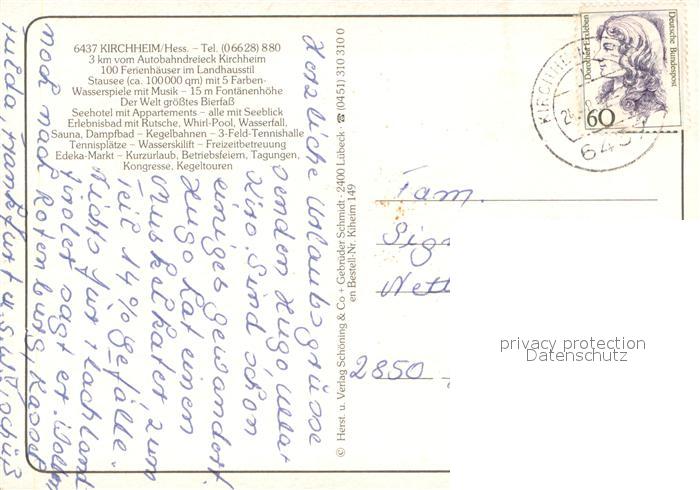 6437 KIRCHHEIM/Hess. – Tel. (06628) 880
3 km vom Autobahndreieck Kirchheim
100 Ferienhäuser im Landhausstil
Stausee (ca. 100 000 qm) mit 5 Farben-
Wasserspiele mit Musik – 15 m Fontänenhöhe
Der Welt größtes Bierfaß
Seehotel mit Appartements – alle mit Seeblick
Erlebnisbad mit Rutsche, Whirl-Pool, Wasserfall,
Sauna, Dampfbad – Kegelbahnen – 3-Feld-Tennishalle
Tennisplätze – Wasserskilift – Freizeitbetreuung
Edeka-Markt – Kurzurlaub, Betriebsfeiern, Tagungen,
Kongresse, Kegeltouren
Herzliche Urlaubsgrüsse
senden Hugo, 
Kiro. Sind schon
einiges gewandert.
Hugo hat einen
Muskelkater, zum
Teil 14% Gefälle.
Nichts für Flachland-
tiroler sagt er. Wollen
noch nach Rotenburg, Kassel
Fulda, Frankfurt u.s.w. Tschüß
© Herst. u. Verlag Schöning & Co + Gebrüder Schmidt · 2400 Lübeck · ☎ (0451) 310 310 0
en Bestell-Nr. Kiheim 149
Dorothea Erxleben
Deutsche Bundespost
60
KIRCHHE
643
Fam.
Sig
Nett
2850
privacy protection
Datenschutz